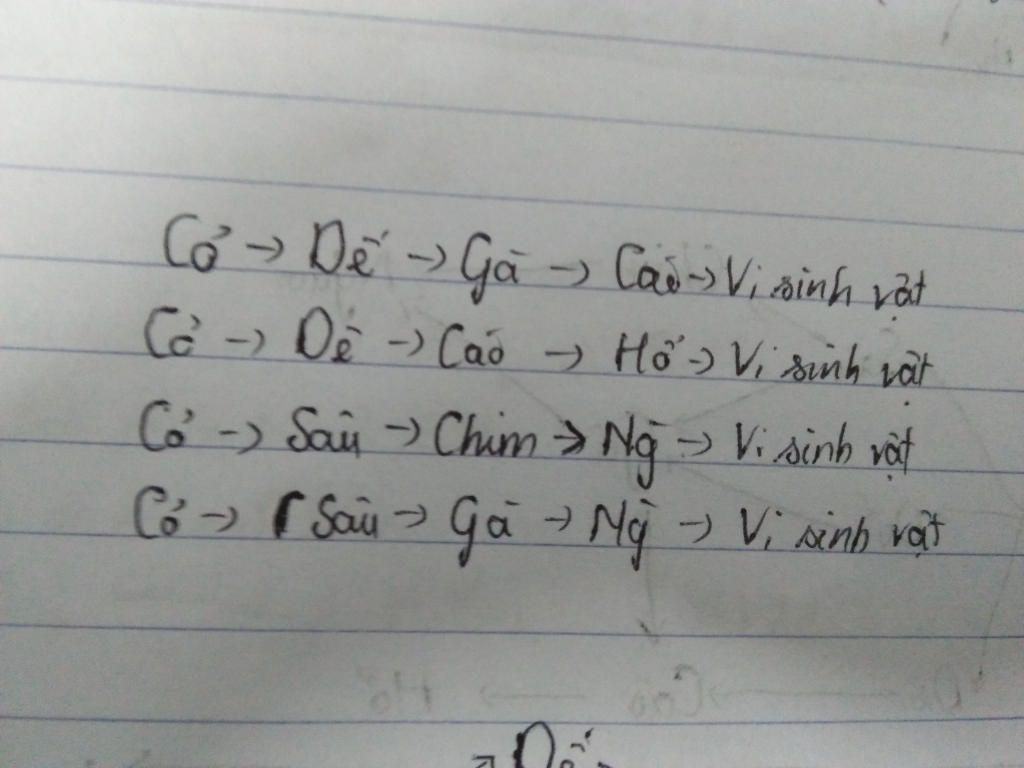 Cỏ → Dế → Gà → Cáo → Vi sinh vật
Cỏ → Dê → Cáo → Hổ → Vi sinh vật
Cỏ → Sâu → Chim → Ng → Vi sinh vật
Cỏ → Sâu → Gà → Ng → Vi sinh vật
Cáo → Hổ
Dế